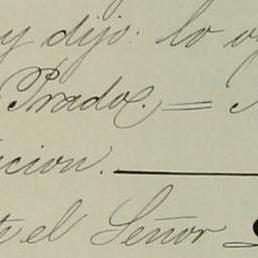 y dijo: lo
Prado. =
icion.
te el Señor